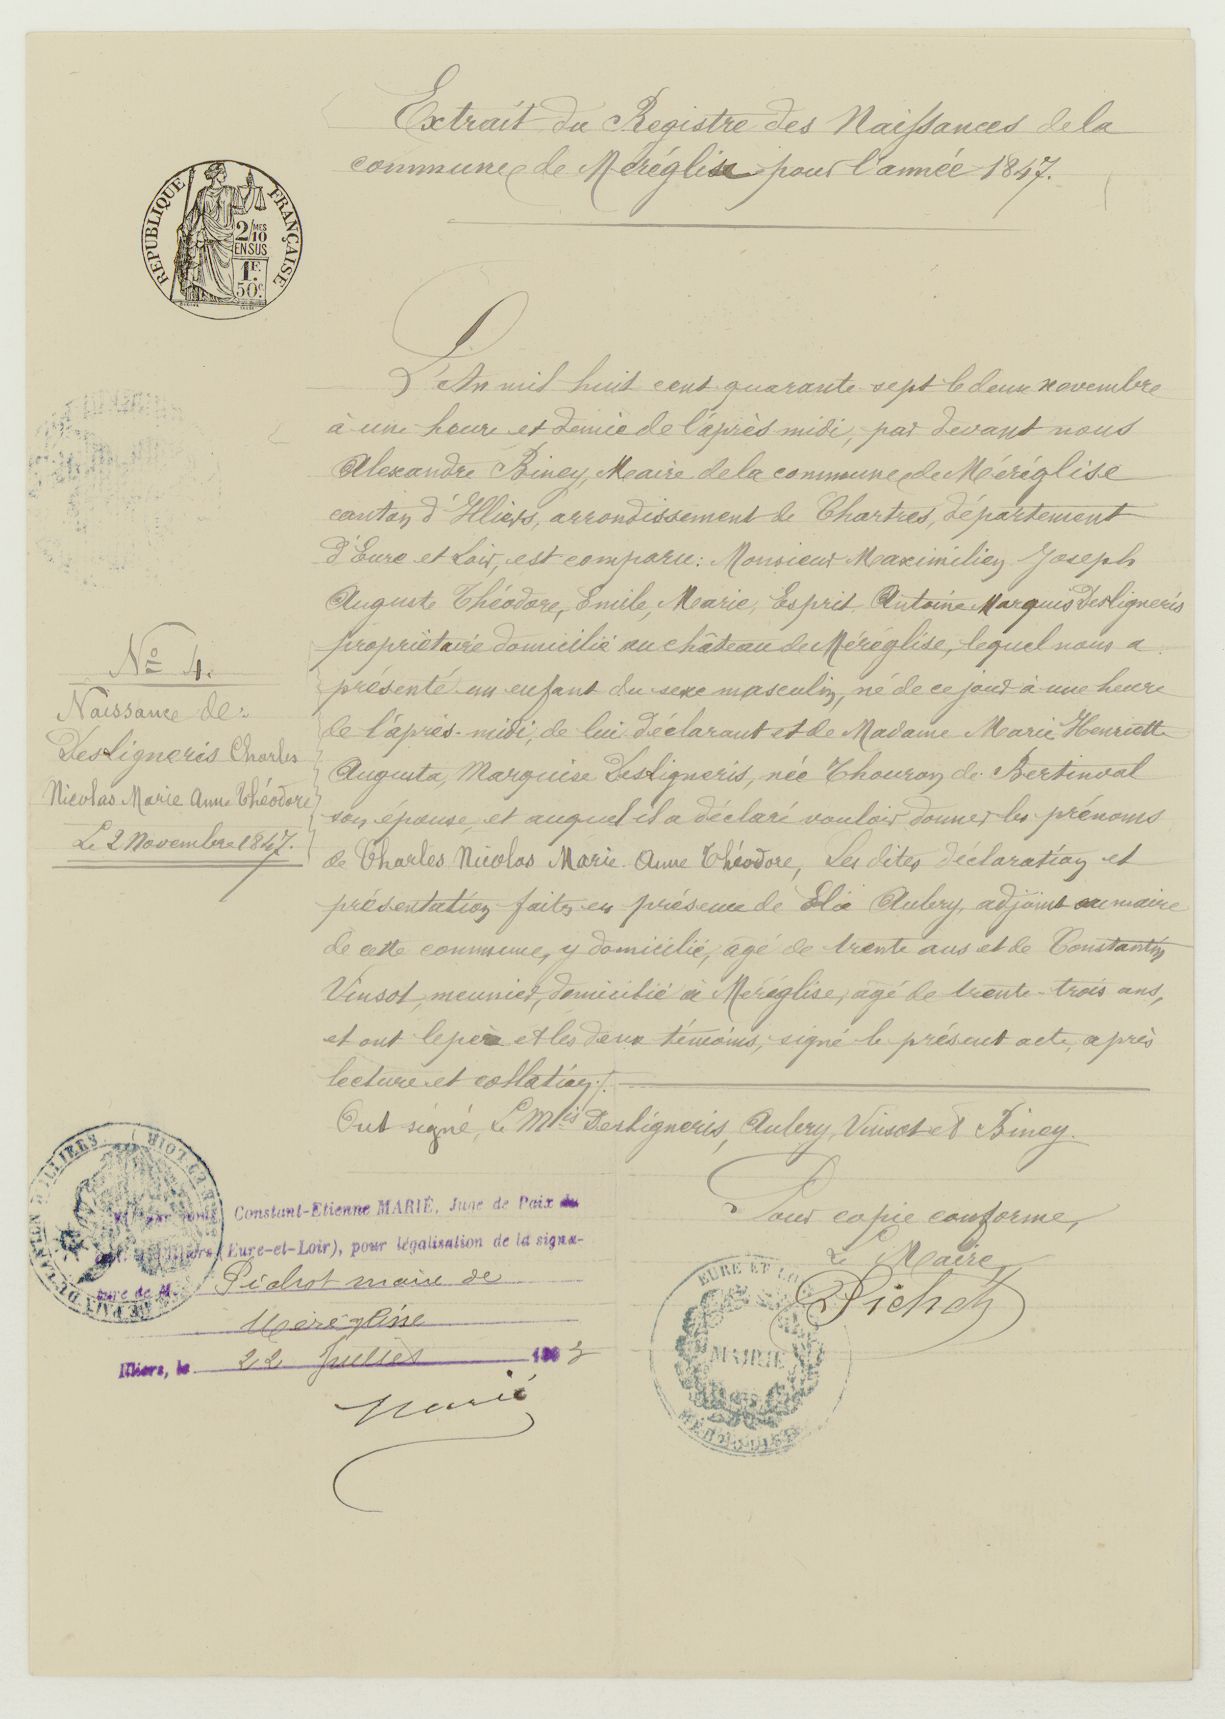 Extrait du Registre des Naissances de la
commune de Méréglise pour l'année 1847.
RÉPUBLIQUE FRANÇAISE
2/10 MES
EN SUS
1F.
50C.
L'An mil huit cent quarante sept le deux novembre
à une heure et demie de l'après midi, par devant nous
Alexandre Biney, Maire de la commune de Méréglise
canton d'Illiers, arrondissement de Chartres, département
d'Eure et Loir, est comparu: Monsieur Maximilien Joseph
Auguste Théodore, Emile, Marie, Esprit Antoine Marquis DesLigneris
propriétaire domicilié au château de Méréglise, lequel nous a
présenté un enfant du sexe masculin, né de ce jour à une heure
de l'après-midi, de lui déclarant et de Madame Marie Henriette
Augusta, Marquise DesLigneris, née Thouron de Bertinval
son épouse, et auquel il a déclaré vouloir donner les prénoms
de Charles Nicolas Marie Anne Théodore, Les dites déclaration et
présentation faites en présence de Elie Aubry, adjoint au maire
de cette commune, y domicilié, âgé de trente ans et de Constantin
Vinsot, meunier, domicilié à Méréglise, âgé de trente-trois ans,
et ont le père et les deux témoins, signé le présent acte, après
lecture et collation./.
Ont signé, Le Mis DesLigneris, Aubry, Vinsot et Biney.
No 4.
Naissance de
DesLigneris Charles
Nicolas Marie Anne Théodore
Le 2 Novembre 1847.
Pour copie conforme,
Le Maire,
Pichot
EURE ET LOIR
MAIRIE
Constant-Etienne MARIÉ, Juge de Paix du
(Eure-et-Loir), pour légalisation de la signa-
ture de M. Pichot maire de
Méréglise
Illiers, le 22 Juillet 1903
Marié